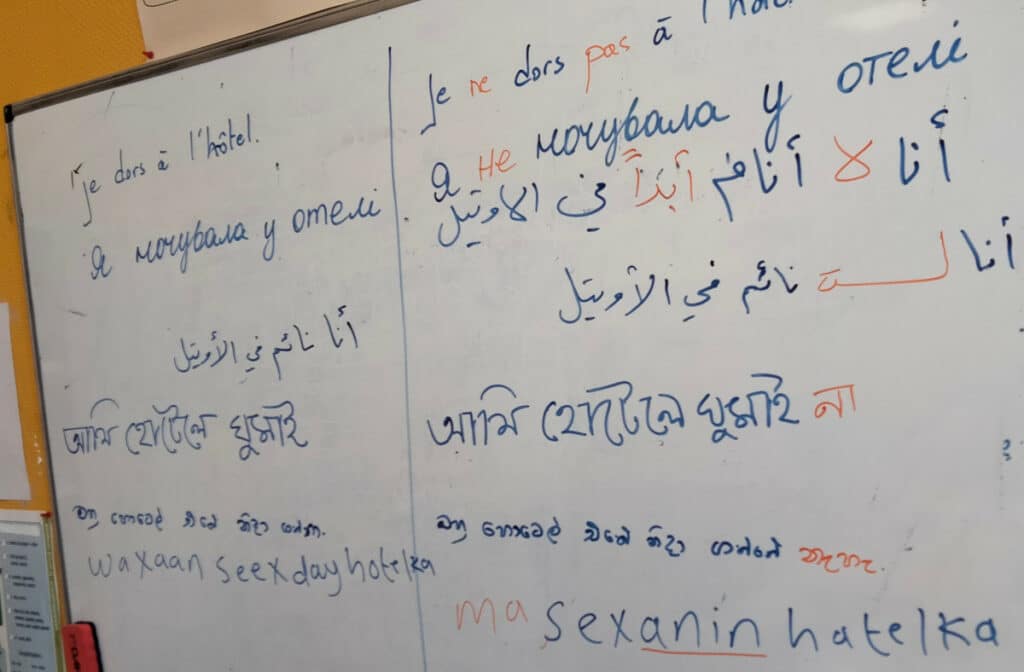 je dors à l'hôtel.
Я ночувала у отелі
أنا نائم في الأوتيل
আমি হোটেলে ঘুমাই
මම හොටෙල් එකේ නිදා ගන්නා.
waxaan seexday hotelka
je ne dors pas à
Я не ночувала у отелі
أنا لا أنام أبداً في الاوتيل
أنا لست نائم في الأوتيل
আমি হোটেলে ঘুমাই না
හොටෙල් එකේ නිදා ගන්නේ නැහැ.
ma sexanin hatelka